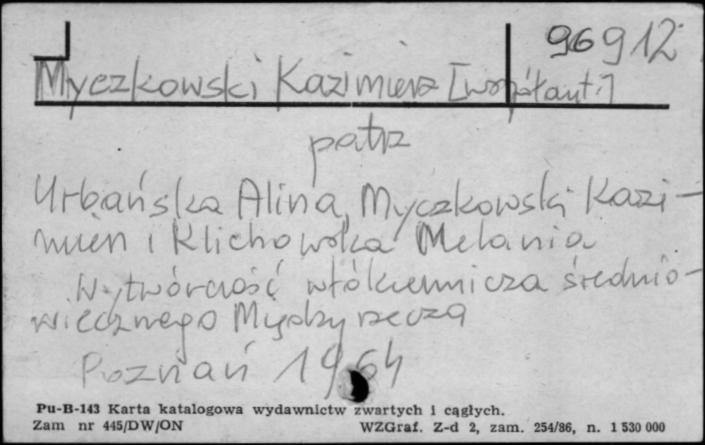 96912
Myczkowski Kazimierz [współaut.]
patrz
Urbańska Alina, Myczkowski Kazi-
mierz i Klichowska Melania
Wytwórczość włókiennicza średnio-
wiecznego Międzyrzecza
Poznań 1964
Pu-B-143 Karta katalogowa wydawnictw zwartych i cągłych.
Zam nr 445/DW/ON WZGraf. Z-d 2, zam. 254/86, n. 1 530 000